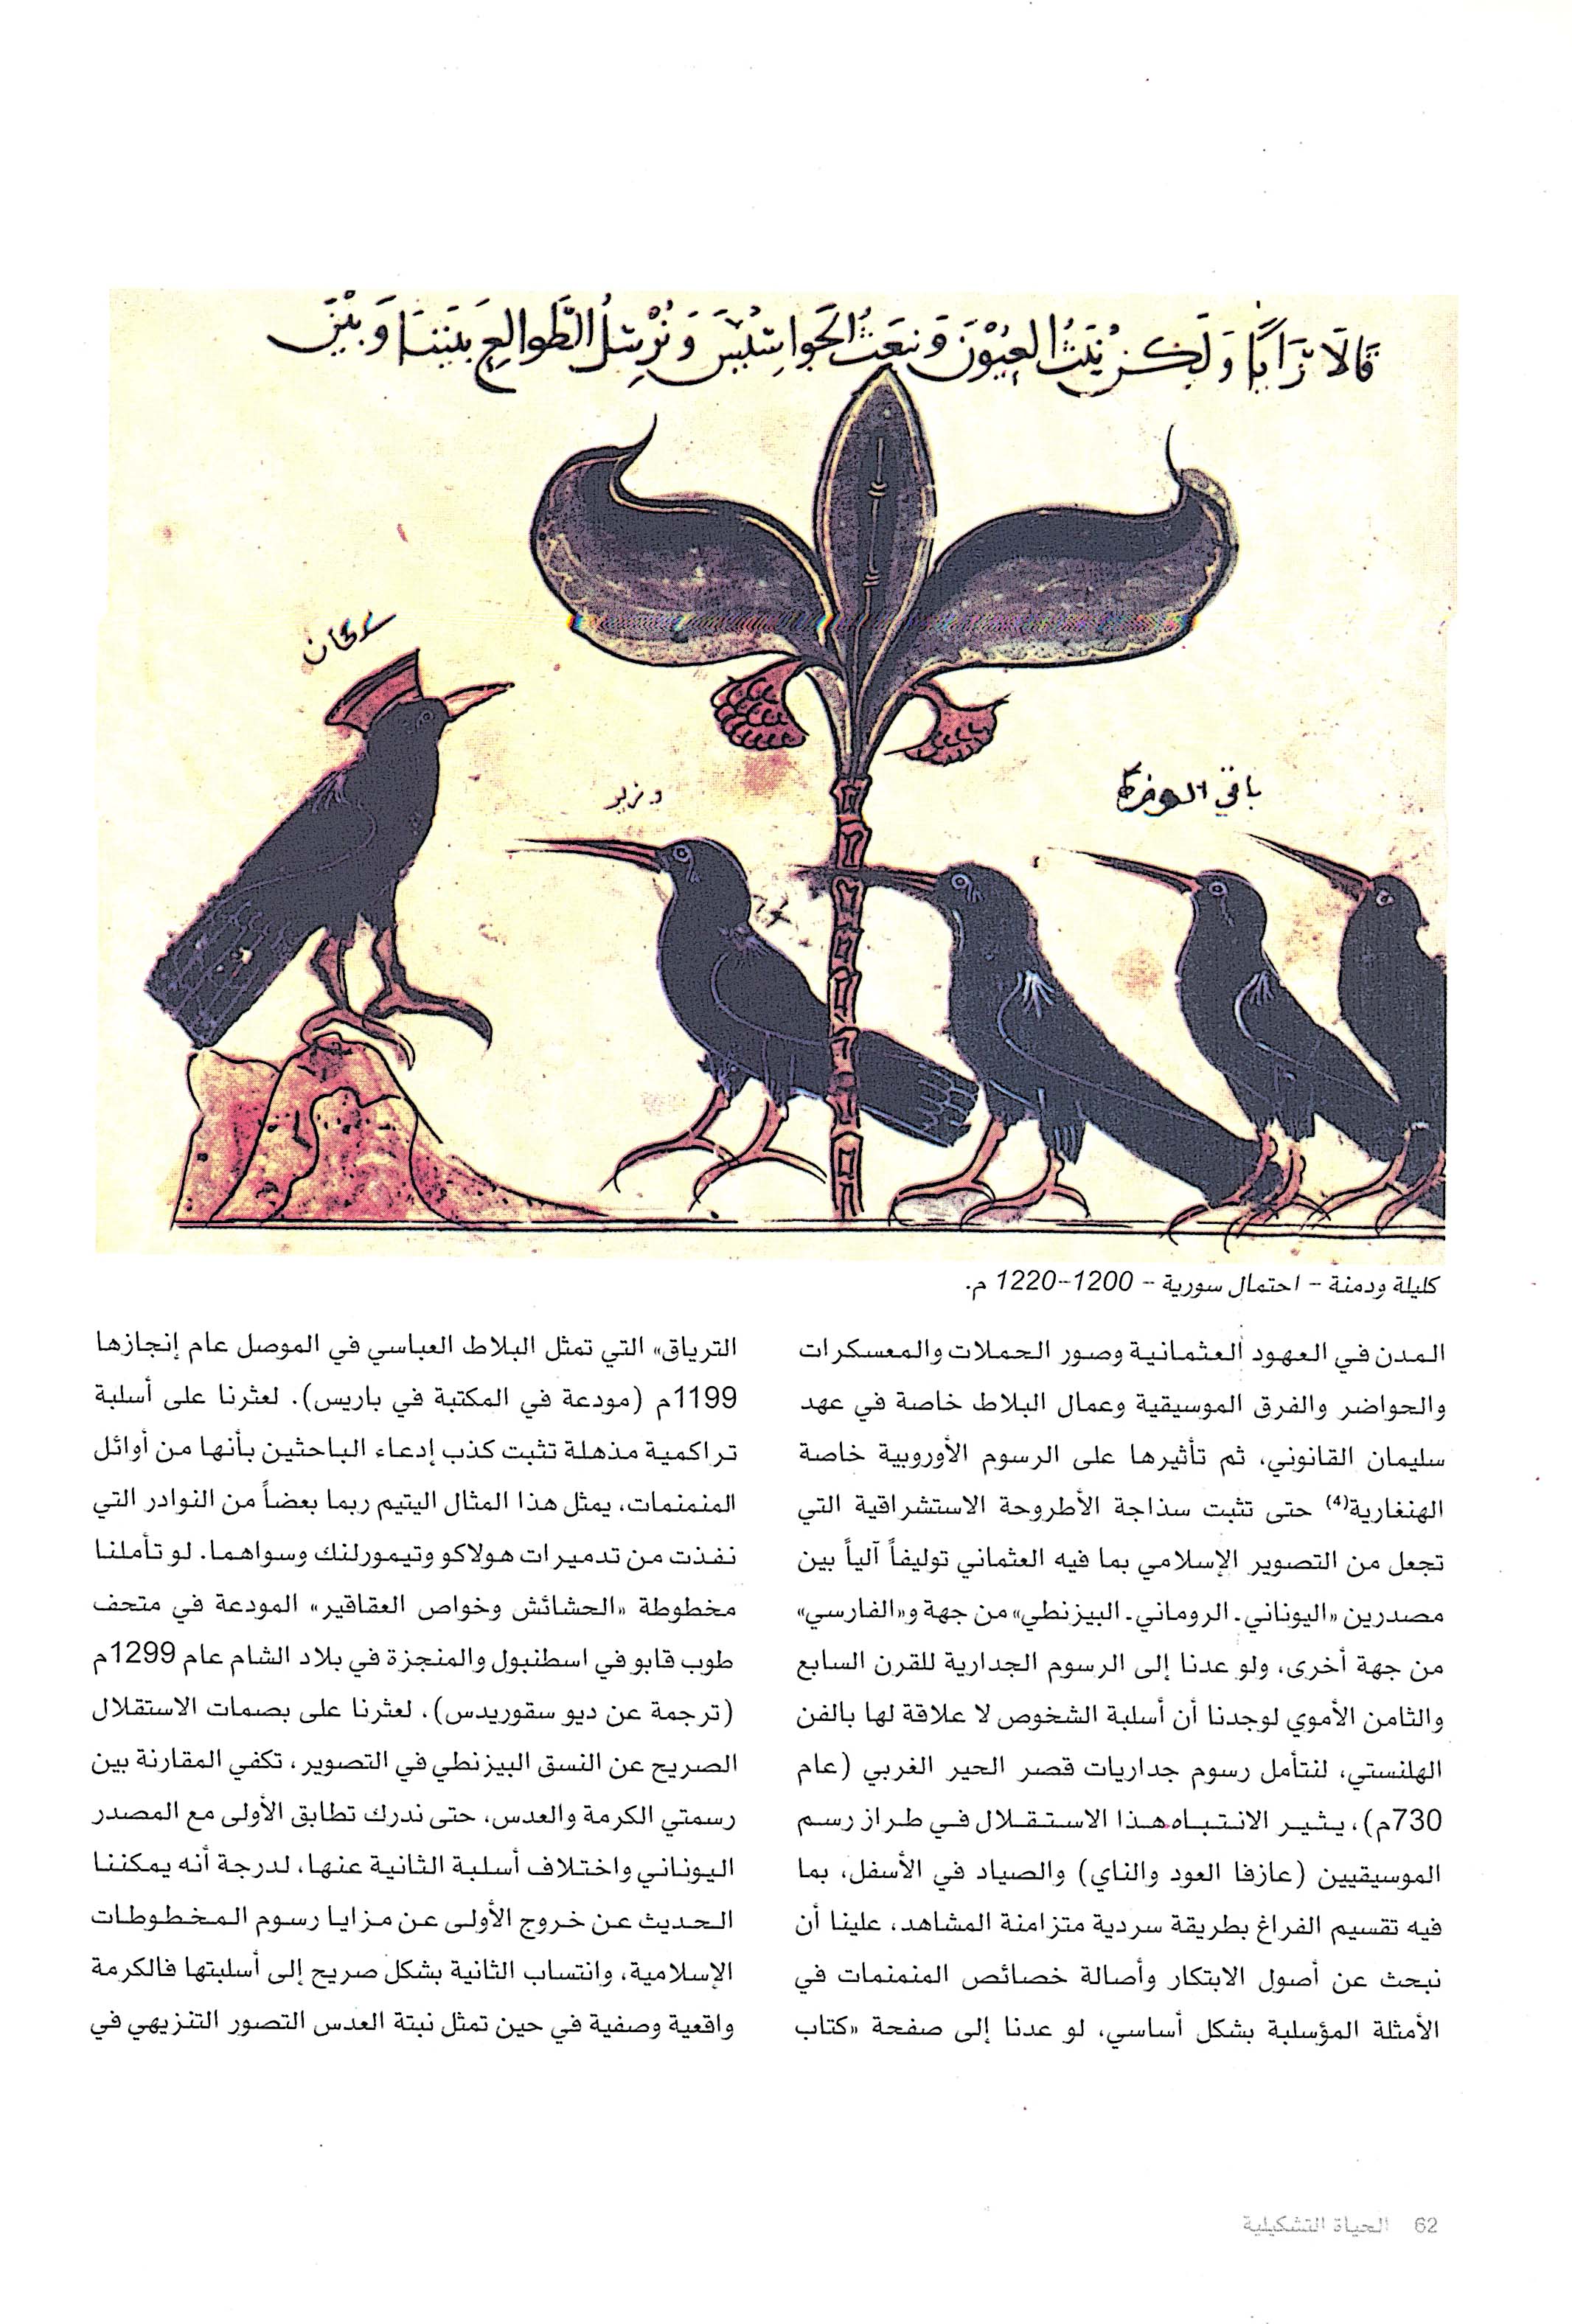 قَالَا رَأيًا وَلَكِن نَبُثُّ العُيُوْنَ وَنبعَثُ الجَوَاسِيْسَ وَنُرْسِلُ الطَّوَالِعَ بَيننَا وَبيْنَ
وزير
باقي
كليلة ودمنة - احتمال سورية - 1200-1220 م.
المدن في العهود العثمانية وصور الحملات والمعسكرات
والحواضر والفرق الموسيقية وعمال البلاط خاصة في عهد
سليمان القانوني، ثم تأثيرها على الرسوم الأوروبية خاصة
الهنغارية(4) حتى تثبت سذاجة الأطروحة الاستشراقية التي
تجعل من التصوير الإسلامي بما فيه العثماني توليفاً آلياً بين
مصدرين «اليوناني. الروماني. البيزنطي» من جهة و«الفارسي»
من جهة أخرى، ولو عدنا إلى الرسوم الجدارية للقرن السابع
والثامن الأموي لوجدنا أن أسلبة الشخوص لا علاقة لها بالفن
الهلنستي، لنتأمل رسوم جداريات قصر الحير الغربي (عام
730م)، يثير الانتباه هذا الاستقلال في طراز رسم
الموسيقيين (عازفا العود والناي) والصياد في الأسفل، بما
فيه تقسيم الفراغ بطريقة سردية متزامنة المشاهد، علينا أن
نبحث عن أصول الابتكار وأصالة خصائص المنمنمات في
الأمثلة المؤسلبة بشكل أساسي، لو عدنا إلى صفحة «كتاب
الترياق» التي تمثل البلاط العباسي في الموصل عام إنجازها
1199م (مودعة في المكتبة في باريس). لعثرنا على أسلبة
تراكمية مذهلة تثبت كذب إدعاء الباحثين بأنها من أوائل
المنمنمات، يمثل هذا المثال اليتيم ربما بعضاً من النوادر التي
نفذت من تدميرات هولاكو وتيمورلنك وسواهما. لو تأملنا
مخطوطة «الحشائش وخواص العقاقير» المودعة في متحف
طوب قابو في اسطنبول والمنجزة في بلاد الشام عام 1299م
(ترجمة عن ديو سقوريدس)، لعثرنا على بصمات الاستقلال
الصريح عن النسق البيزنطي في التصوير، تكفي المقارنة بين
رسمتي الكرمة والعدس، حتى ندرك تطابق الأولى مع المصدر
اليوناني واختلاف أسلبة الثانية عنها، لدرجة أنه يمكننا
الحديث عن خروج الأولى عن مزايا رسوم المخطوطات
الإسلامية، وانتساب الثانية بشكل صريح إلى أسلبتها فالكرمة
واقعية وصفية في حين تمثل نبتة العدس التصور التنزيهي في
62 الحياة التشكيلية